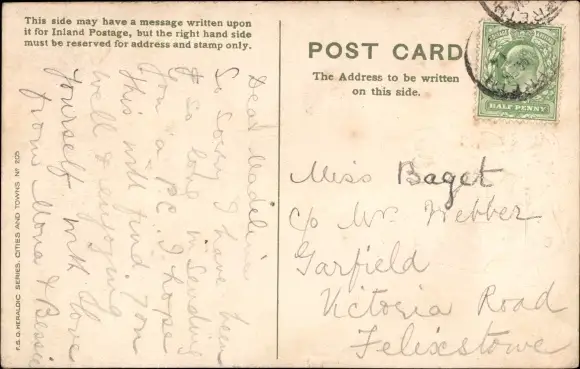 This side may have a message written upon
it for Inland Postage, but the right hand side
must be reserved for address and stamp only.
Dear Madeline
So sorry I have been
so long in sending
you a P.C. I hope
this will find you
well & enjoying
yourself with love
from Mona & Bessie
F.S.O. HERALDIC SERIES, CITIES AND TOWNS Nº 205
POST CARD
The Address to be written
on this side.
HALF PENNY
Miss Baget
c/o Mr. Webber
Garfield
Victoria Road
Felixstowe